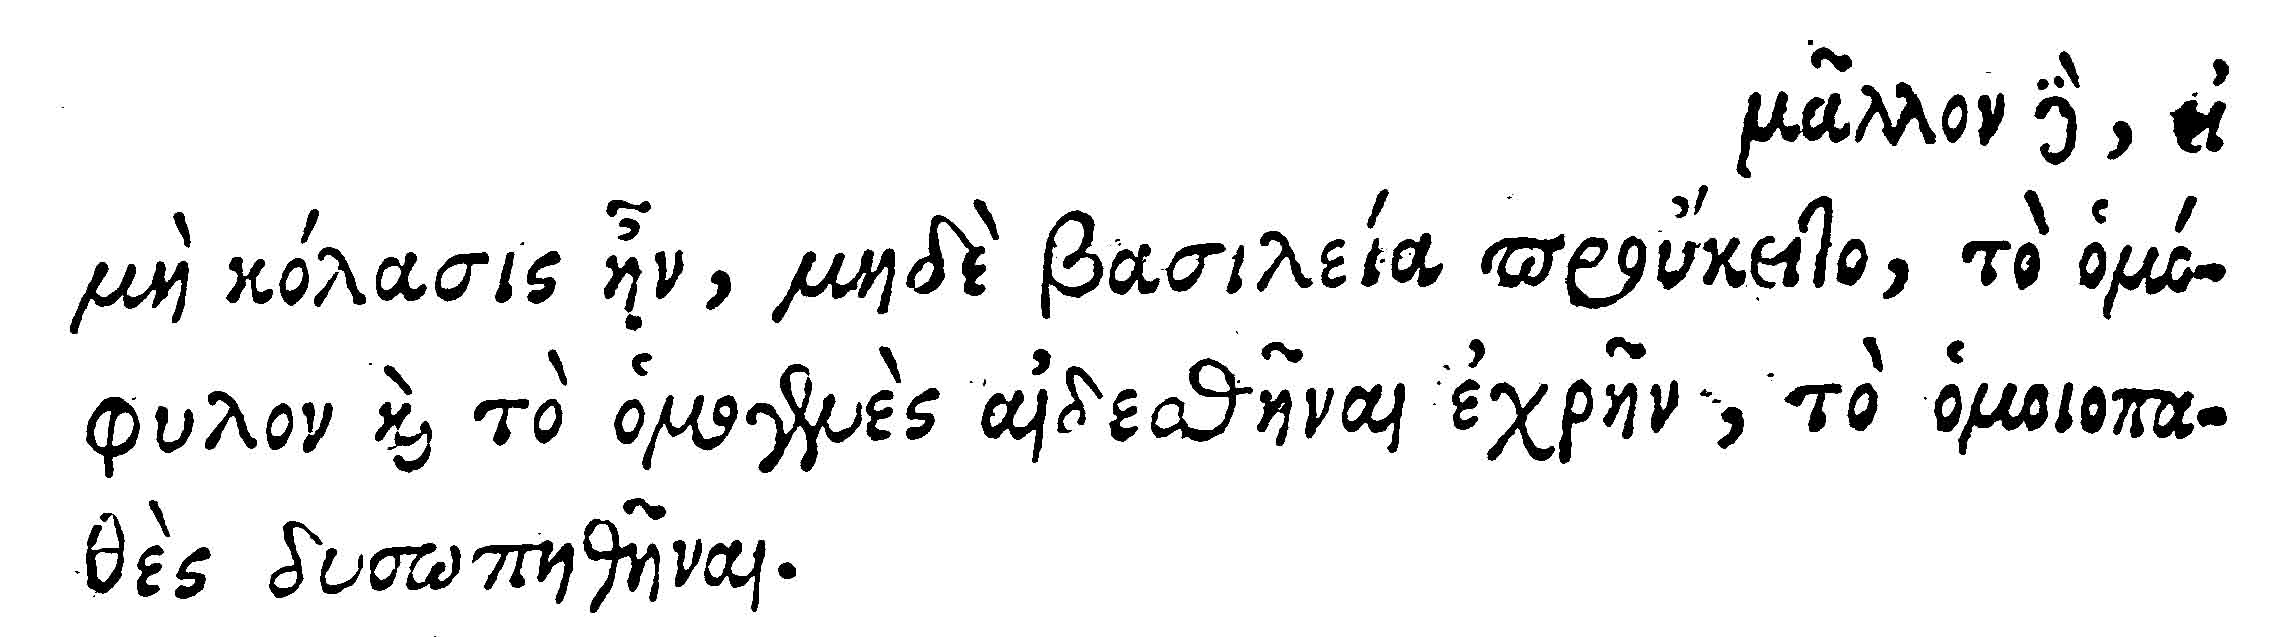 μᾶλλον δὲ, εἰ
μὴ κόλασις ἦν, μηδὲ βασιλεία προὔκειτο, τὸ ὁμό-
φυλον καὶ τὸ ὁμογενὲς αἰδεσθῆναι ἐχρῆν, τὸ ὁμοιοπα-
θὲς δυσωπηθῆναι.